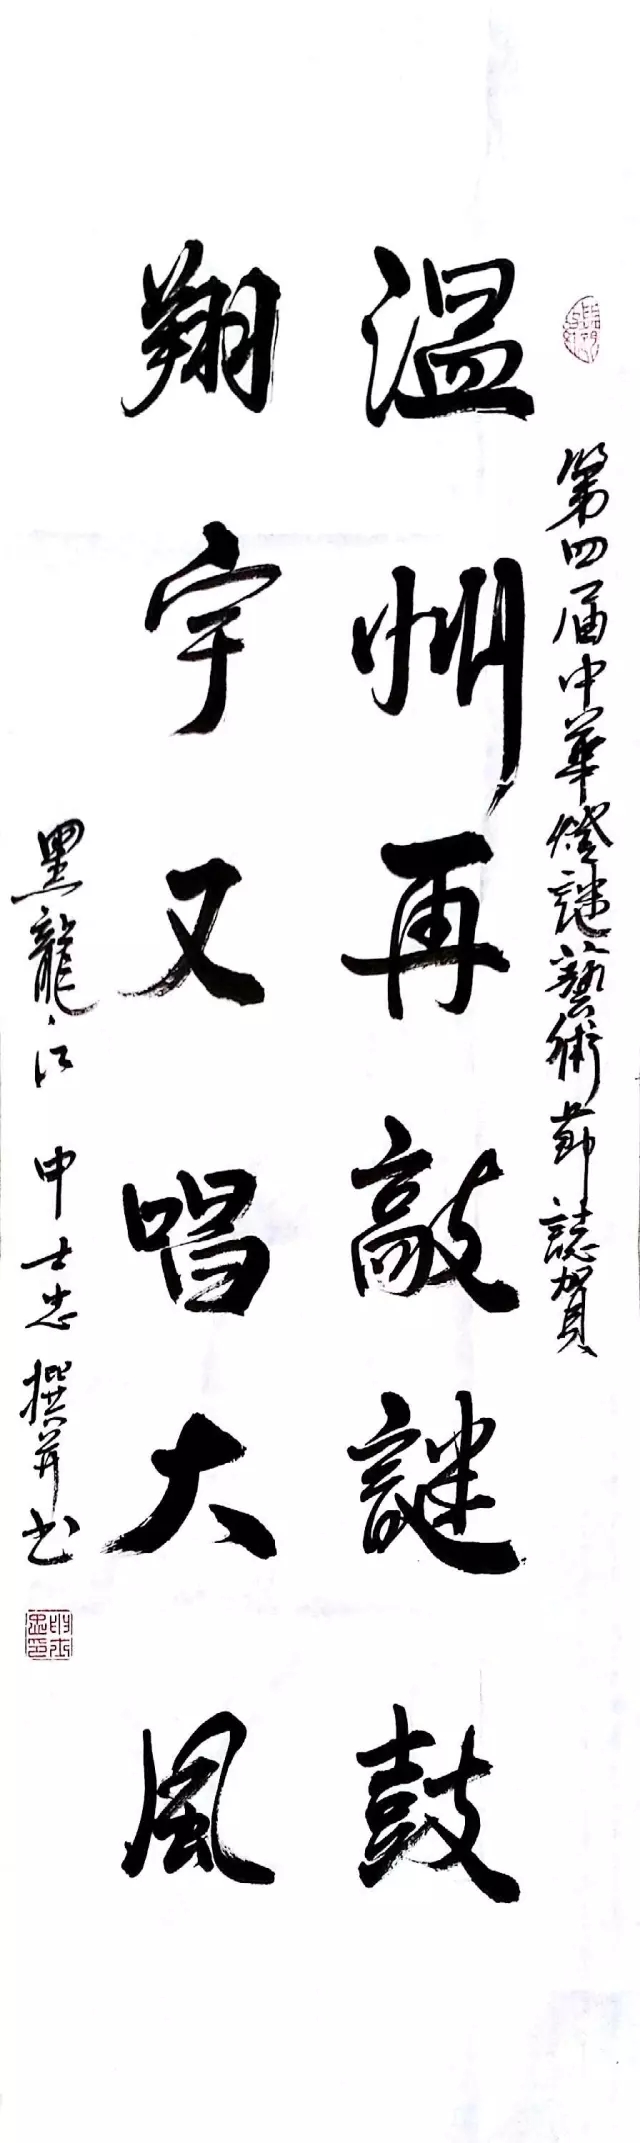 第四届中華燈謎藝術節誌賀
温州再敲謎鼓
翔宇又唱大風
黑龍江 申士忠撰并书